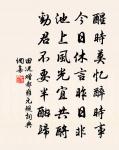 醒時莫憶醉時事
今日休言昨日非
池上風光宜共醉
勸君不要半酣歸